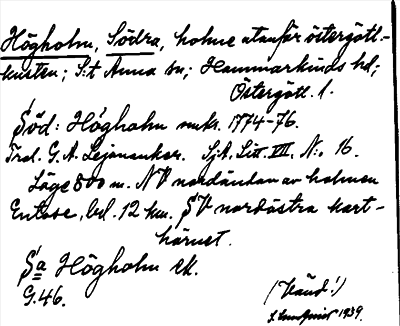 Högholm, Södra, holme utanför östergötl.-
kusten; S:t Anna sn; Hammarkinds hd;
Östergötl. l.
Söd: Högholm mkr. 1774-76.
Trol. G. A. Lejonankar. SjA, Litt. VII, N:o 16.
Läge 800 m. NV nordändan av holmen
Entese, bel. 12 km. SV nordöstra kart-
hörnet.
Sa Högholm EK.
G.46.
(Vänd!)
S. Lundqvist 1939.